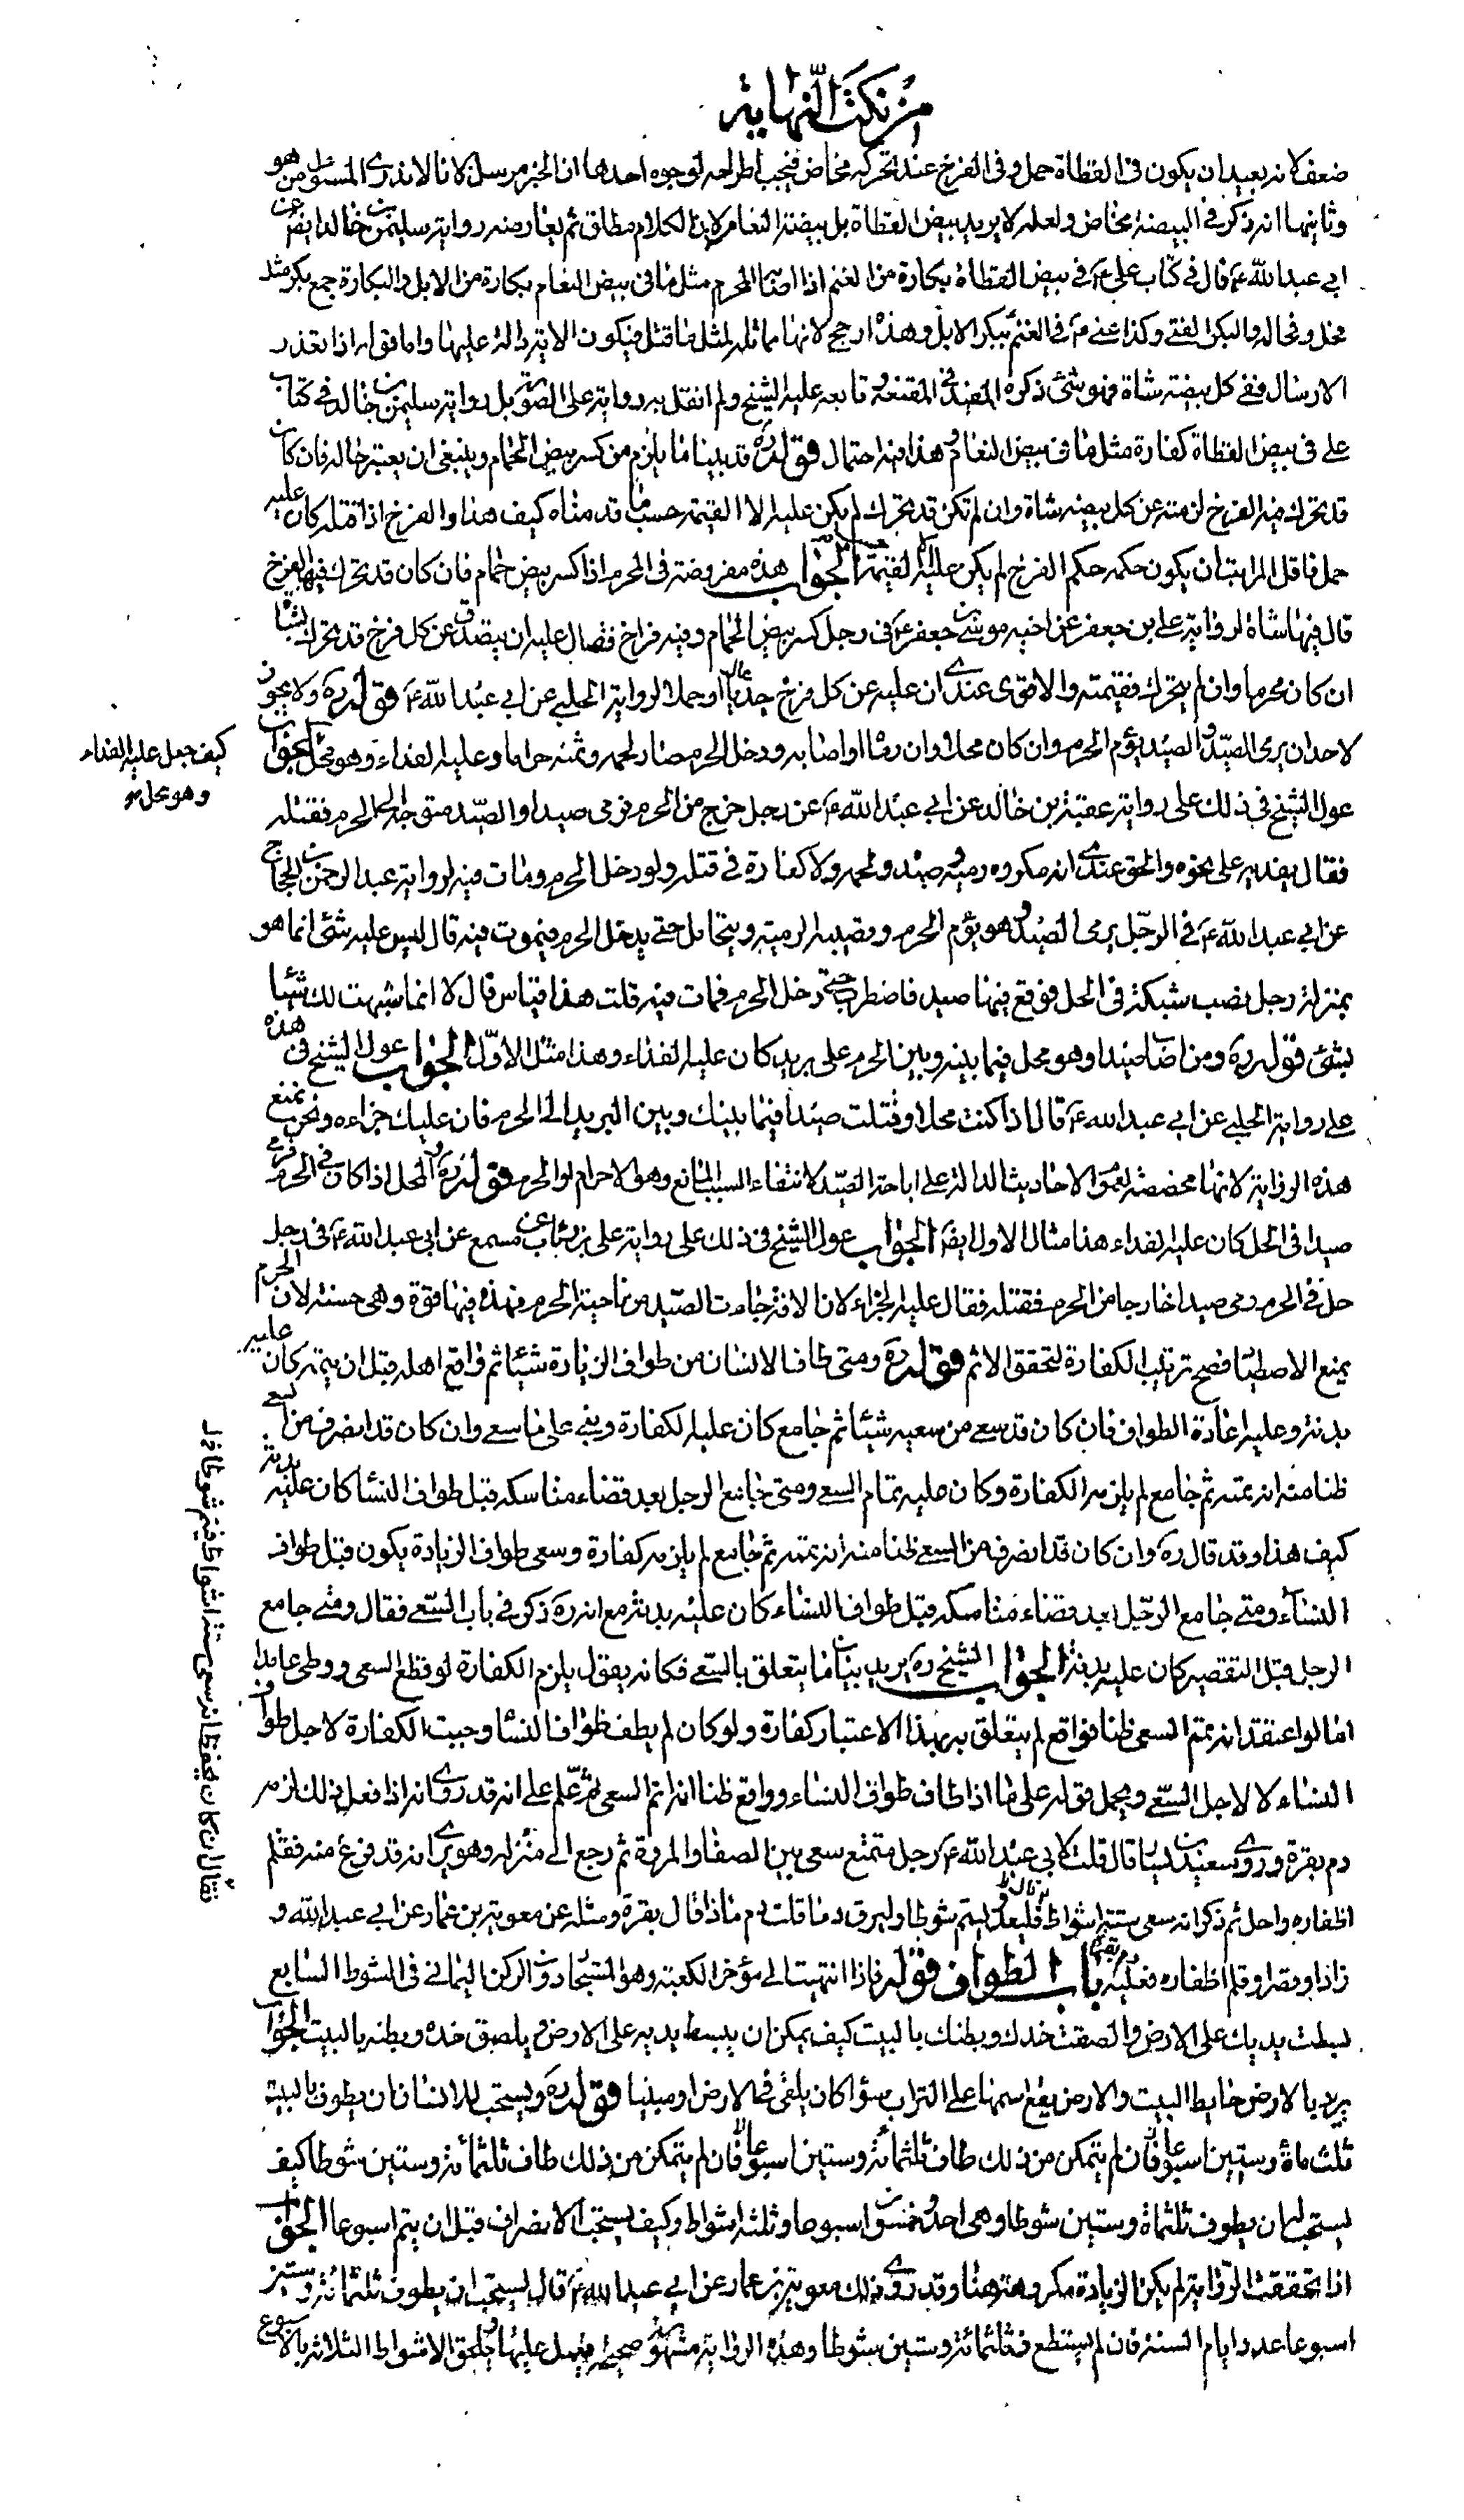 من نكت النهاية
ضعف لانه بعيد ان يكون في القطاة حمل و في الفرخ عند تحركه مخاض فيجب اطراحه لوجوه احدها ان الخبر مرسل لانا لا ندري المسئول من هو
وثانيها انه ذكر في البيضة مخاض ولعله لا يريد بيض القطاة بل بيضة النعام لان الكلام مطلق ثم يعارضه رواية سليمن بن خالد ايضا عن
ابي عبد الله ع قال في كتاب علي ع في بيض القطاة بكارة من الغنم اذا اصابه المحرم مثل ما في بيض النعام بكارة من الابل والبكارة جمع بكر مثل
فحل وفحالة والبكر الفتى وكذا عنى ع في الغنم ببكر الابل وهذا ارجح لانها مماثلة لمثل ما قتل فيكون الاية دالة عليها واما قوله اذا تعذر
الارسال ففي كل بيضة شاة فهو شئ ذكره المفيد في المقنعة وتابعه عليه الشيخ ولم انقل به رواية على الصورة بل رواية سليمن بن خالد في كتاب
علي في بيض القطاة كفارة مثل ما في بيض النعام وهذا فيه احتمال قوله ره قد بينا ما يلزم من كسر بيض الحمام وينبغي ان يعتبر حاله فان كان
قد تحرك فيه الفرخ لزمته عن كل بيضة شاة وان لم تكن قد تحرك لم يكن عليه الا القيمة حسب ما قدمناه كيف هذا والفرخ اذا قتله كان عليه
حمل فاقل المراتب ان يكون حكمه حكم الفرخ لم يكن عليه الا القيمة الجواب هذه مفروضة في المحرم اذا كسر بيض حمام فان كان قد تحرك فيها الفرخ
قال فيها شاة لرواية علي بن جعفر عن اخيه موسى بن جعفر ع في رجل كسر بيض الحمام وفيه فراخ فقال عليه ان يتصدق عن كل فرخ قد تحرك بشاة
ان كان محرما وان لم يتحرك فقيمته والاقوى عندي ان عليه عن كل فرخ جديا او حملا لرواية الحلبي عن ابي عبد الله ع قوله ره ولا يجوز
لاحد ان يرمي الصيد والصيد يؤم الحرم وان كان محلا وان رماه او اصابه ودخل الحرم صار لحمه وثمنه حراما وعليه الفداء وهو محل الجواب
عول الشيخ في ذلك على رواية عقبة بن خالد عن ابي عبد الله ع عن رجل خرج من الحرم فرمى صيدا والصيد متوجه الى الحرم فقتله
فقال يفديه على نحوه والحق عندي انه مكروه رميه صيد ولحمه ولا كفارة في قتله ولو دخل الحرم ومات فيه لرواية عبد الرحمن بن الحجاج
عن ابي عبد الله ع في الرجل يرمي الصيد وهو يؤم الحرم ويصيبه الرمية ويتحامل حتى يدخل الحرم فيموت فيه قال ليس عليه شئ انما هو
بمنزلة رجل نصب شبكة في الحل فوقع فيها صيد فاضطرب حتى دخل الحرم فمات فيه قلت هذا قياس قال لا انما شبهت لك شيئا
بشئ قوله ره ومن اصاب صيدا وهو محل فيما بينه وبين الحرم على بريد كان عليه الفداء وهذا مثل الاول الجواب عول الشيخ في هذه
على رواية الحلبي عن ابي عبد الله ع قال اذا كنت محلا وقتلت صيدا فيما بينك وبين البريد الى الحرم فان عليك جزاءه ونحن نمنع
هذه الرواية لانها مخصصة لعموم الاحاديث الدالة على اباحة الصيد لانتفاء السبب المانع وهو الاحرام او الحرم قوله ره والمحل اذا كان في الحرم فرمى
صيدا في الحل كان عليه الفداء هذا مثال الاول ايضا الجواب عول الشيخ في ذلك على رواية علي بن رئاب عن مسمع عن ابي عبد الله ع في رجل
حل في الحرم رمى صيدا خارجا من الحرم فقتله فقال عليه الجزاء لان الافة جاءت الصيد من ناحية الحرم فهذه فيها قوة وهي حسنة لان الحرم
يمنع الاصطياد فصح ترتيب الكفارة لتحقق الاثم قوله ره ومتى طاف الانسان من طواف الزيارة شيئا ثم واقع اهله قبل ان يتمه كان عليه
بدنة وعليه اعادة الطواف فان كان قد سعى من سعيه شيئا ثم جامع كان عليه الكفارة ويبني على ما سعى وان كان قد انصرف من السعي
ظنا منه انه تممه ثم جامع لم يلزمه الكفارة وكان عليه تمام السعي ومتى جامع الرجل بعد قضاء مناسكه قبل طواف النساء كان عليه بدنة
كيف هذا وقد قال ره وان كان قد انصرف من السعي ظنا منه انه تممه ثم جامع لم يلزمه كفارة وسعى طواف الزيارة يكون قبل طواف
النساء ومتى جامع الرجل بعد قضاء مناسكه قبل طواف النساء كان عليه بدنة مع انه ره ذكر في باب السعي فقال ومتى جامع
الرجل قبل التقصير كان عليه بدنة الجواب الشيخ ره يريد بيان ما يتعلق بالسعي فكانه يقول يلزم الكفارة لو قطع السعي ووطى عامدا
اما لو اعتقد انه تمم السعي ظنا فواقع لم يتعلق به بهذا الاعتبار كفارة ولو كان لم يطف طواف النساء وجبت الكفارة لاجل طواف
النساء لا لاجل السعي ويحمل قوله على ما اذا طاف طواف النساء وواقع ظنا انه اتم السعي ثم علم على انه قد روي انه اذا فعل ذلك لزمه
دم بقرة وروى سعيد بن يسار قال قلت لابي عبد الله ع رجل متمتع سعى بين الصفا والمروة ثم رجع الى منزله وهو يرى انه قد فرغ منه فقلم
اظفاره واحل ثم ذكر انه سعى ستة اشواط فليعد وليتم شوطا وليرق دما قلت دم ماذا قال بقرة ومثله عن معوية بن عمار عن ابي عبد الله و
زاد او قصر او قلم اظفاره فعليه دم بقرة باب الطواف قوله فاذا انتهيت الى مؤخر الكعبة وهو المستجار دون الركن اليماني في الشوط السابع
بسطت يديك على الارض والصقت خدك وبطنك بالبيت كيف يمكن ان يبسط يديه على الارض ويلصق خده وبطنه بالبيت الجواب
يريد بالارض حايط البيت والارض يقع اسمها على التراب سواء كان يلقى في الارض او مبنيا قوله ره ويستحب للانسان ان يطوف بالبيت
ثلث مائة وستين اسبوعا فان لم يتمكن من ذلك طاف ثلثمائة وستين اسبوعا فان لم يتمكن من ذلك طاف ثلثمائة وستين شوطا كيف
يستحب له ان يطوف ثلثمائة وستين شوطا وهي احد وخمسون اسبوعا وثلثة اشواط وكيف يستحب الانصراف قبل ان يتم اسبوعا الجواب
اذا تحققت الرواية لم يكن الزيادة مكروهة هنا وقد روى ذلك معوية بن عمار عن ابي عبد الله ع قال يستحب ان يطوف ثلثمائة وستين
اسبوعا عدد ايام السنة فان لم يستطع فثلثمائة وستين شوطا وهذه الرواية مشهورة صحيحة فيعمل عليها ويلحق الاشواط الثلاثة بالاسبوع
كيف جعل عليه الفداء
وهو محل